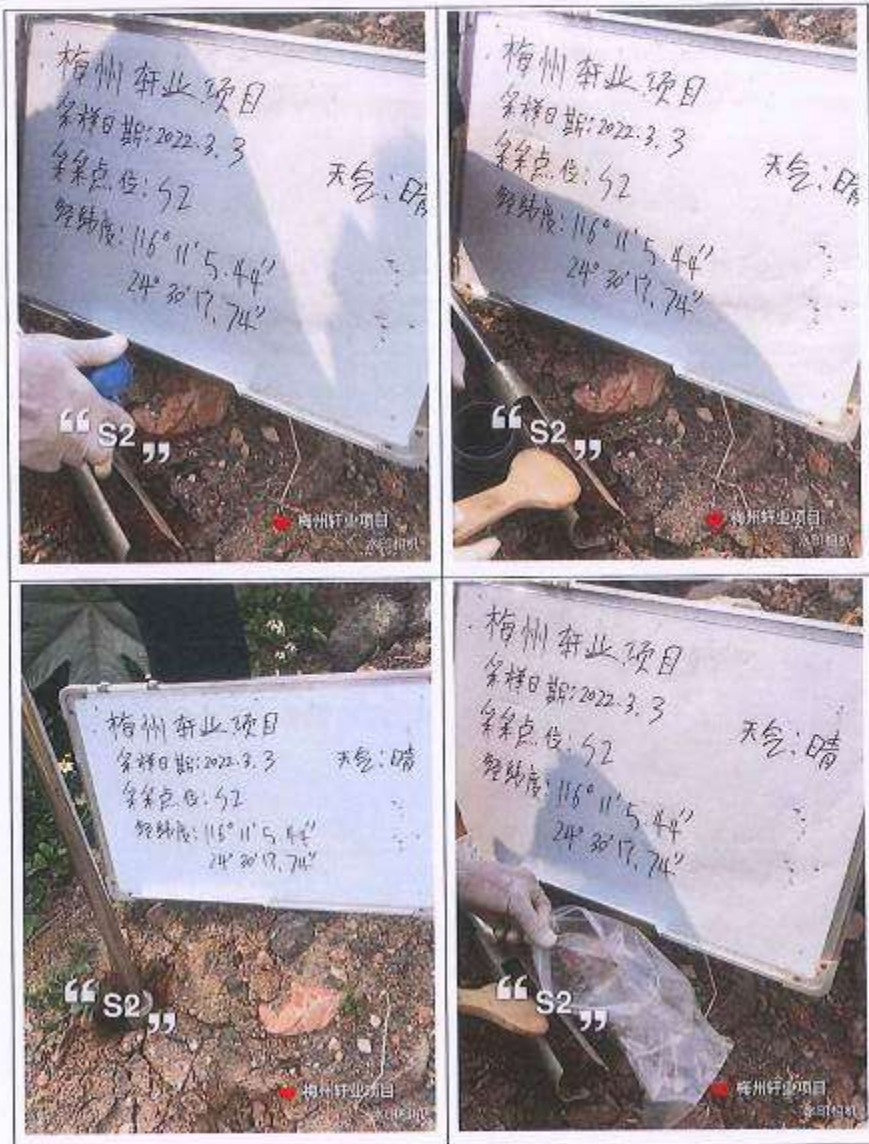 梅州轩业项目
采样日期:2022.3.3
天气:晴
采采点位:S2
经纬度:116°11'5.44"
24°30'17.74"
“S2”
梅州轩业项目
水印相机
梅州轩业项目
采样日期:2022.3.3
天气:晴
采采点位:S2
经纬度:116°11'5.44"
24°30'17.74"
“S2”
梅州轩业项目
水印相机
梅州轩业项目
采样日期:2022.3.3
天气:晴
采采点位:S2
经纬度:116°11'5.44"
24°30'17.74"
“S2”
梅州轩业项目
水印相机
梅州轩业项目
采样日期:2022.3.3
天气:晴
采采点位:S2
经纬度:116°11'5.44"
24°30'17.74"
“S2”
梅州轩业项目
水印相机